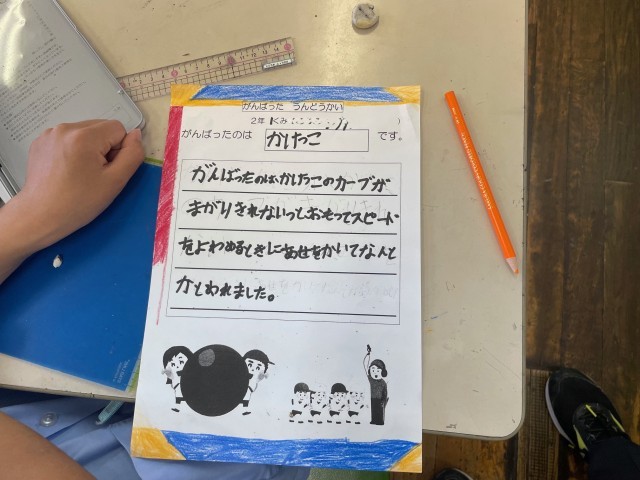 がんばった うんどうかい
2年 Kくみ
がんばったのは かけっこ です。
がんばったのは、かけっこのカーブが
まがりきれないっとおもってスピード
をよわめるときにあせをかいてなんと
かもわれました。